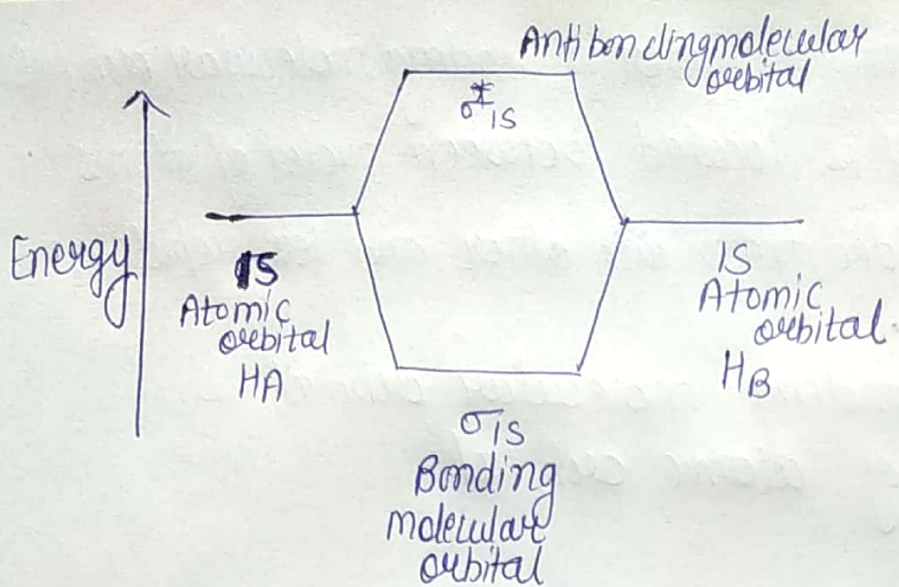 Antibondingmolecular
orbital
σ*1S
Energy
1S
Atomic
orbital
HA
1S
Atomic
orbital
HB
σ1S
Bonding
molecular
orbital